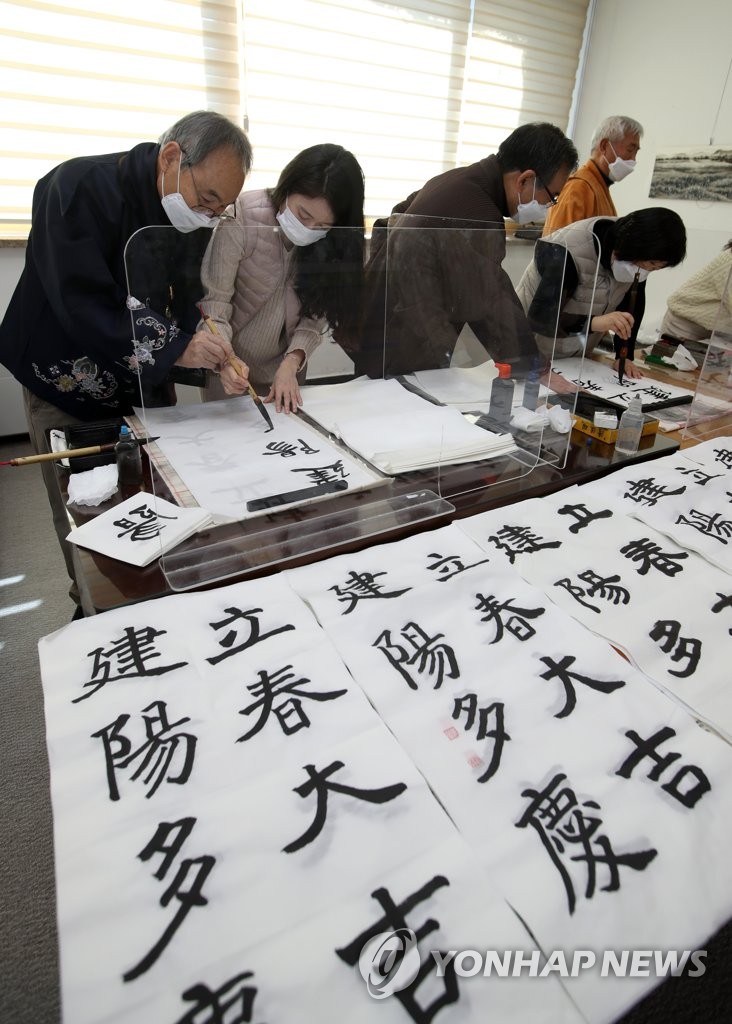 陽
建陽
立春大吉
建陽多
立春大吉
建陽多慶
立春
建陽多
建陽
YONHAP NEWS